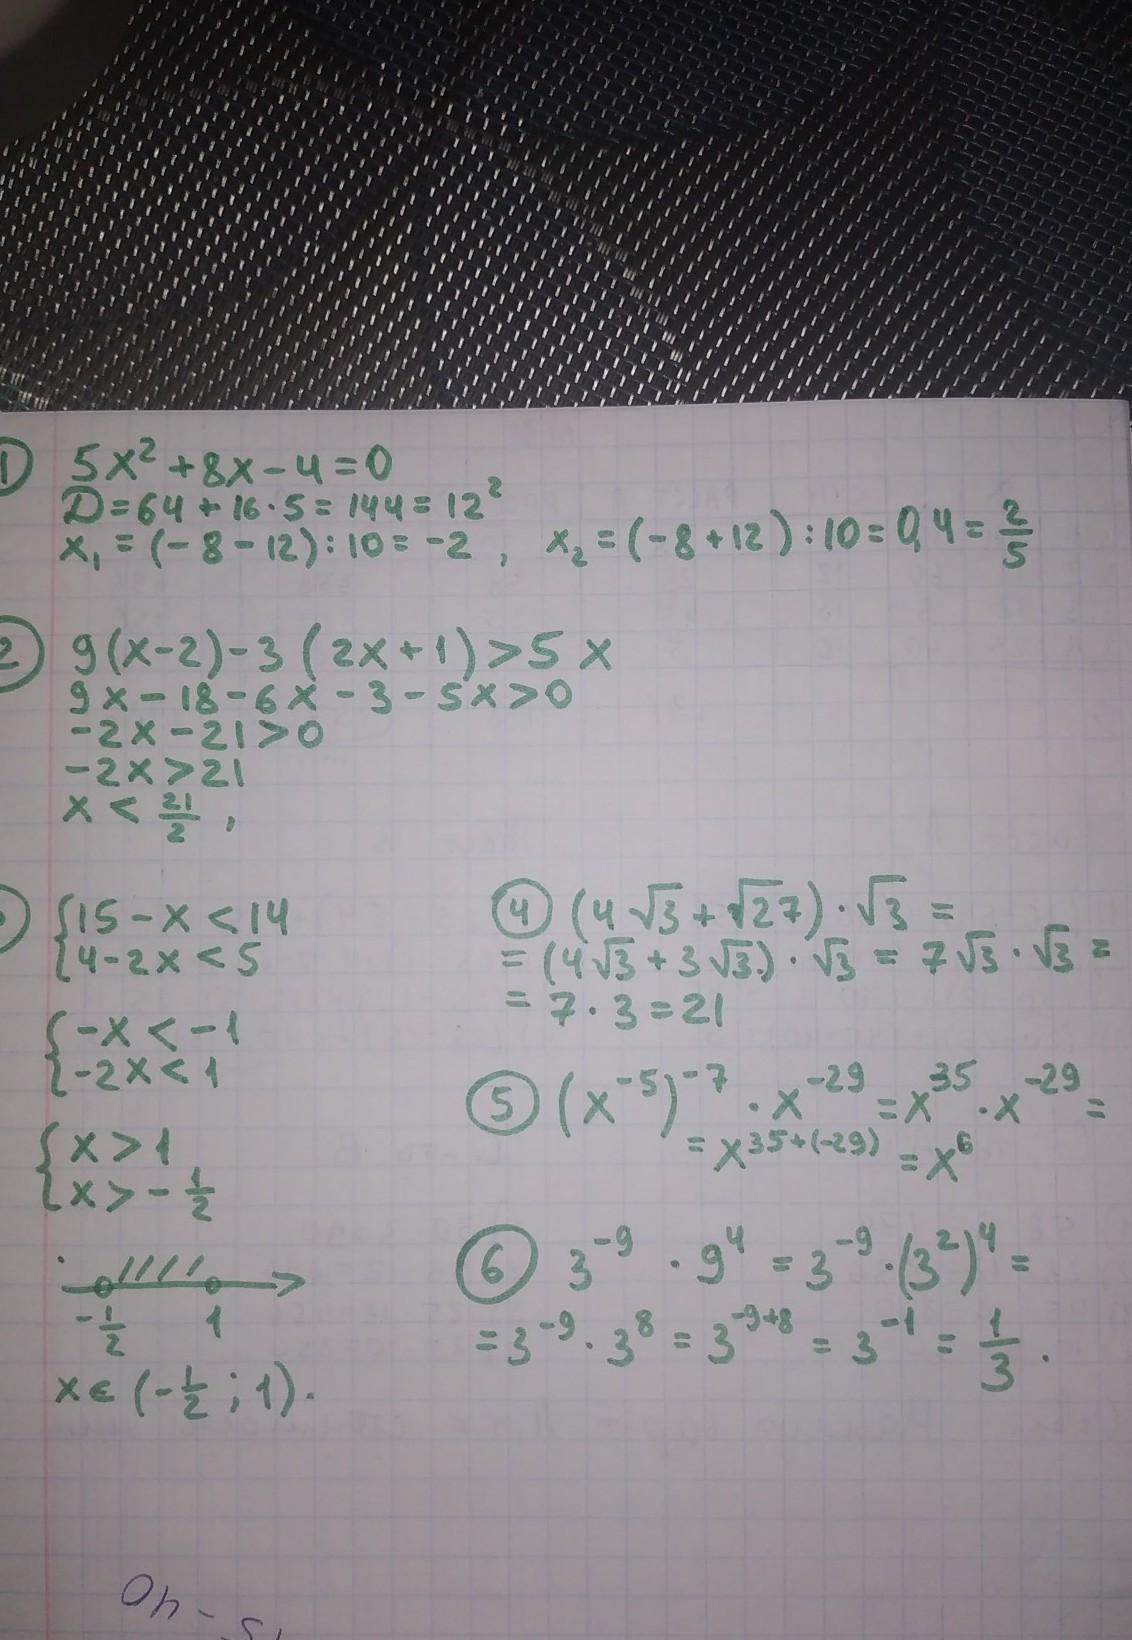 1) 5x² + 8x - 4 = 0
D = 64 + 16 · 5 = 144 = 12²
x₁ = (-8 - 12) : 10 = -2 , x₂ = (-8 + 12) : 10 = 0,4 = 2/5
2) 9(x-2) - 3(2x+1) > 5x
9x - 18 - 6x - 3 - 5x > 0
-2x - 21 > 0
-2x > 21
x < 21/2 ,
{15 - x < 14
{4 - 2x < 5
{-x < -1
{-2x < 1
{x > 1
{x > -1/2
-1/2 1
x ∈ (-1/2 ; 1).
4) (4√3 + √27) · √3 =
= (4√3 + 3√3) · √3 = 7√3 · √3 =
= 7 · 3 = 21
5) (x⁻⁵)⁻⁷ · x⁻²⁹ = x³⁵ · x⁻²⁹ =
= x³⁵⁺⁽⁻²⁹⁾ = x⁶
6) 3⁻⁹ · 9⁴ = 3⁻⁹ · (3²)⁴ =
= 3⁻⁹ · 3⁸ = 3⁻⁹⁺⁸ = 3⁻¹ = 1/3 .